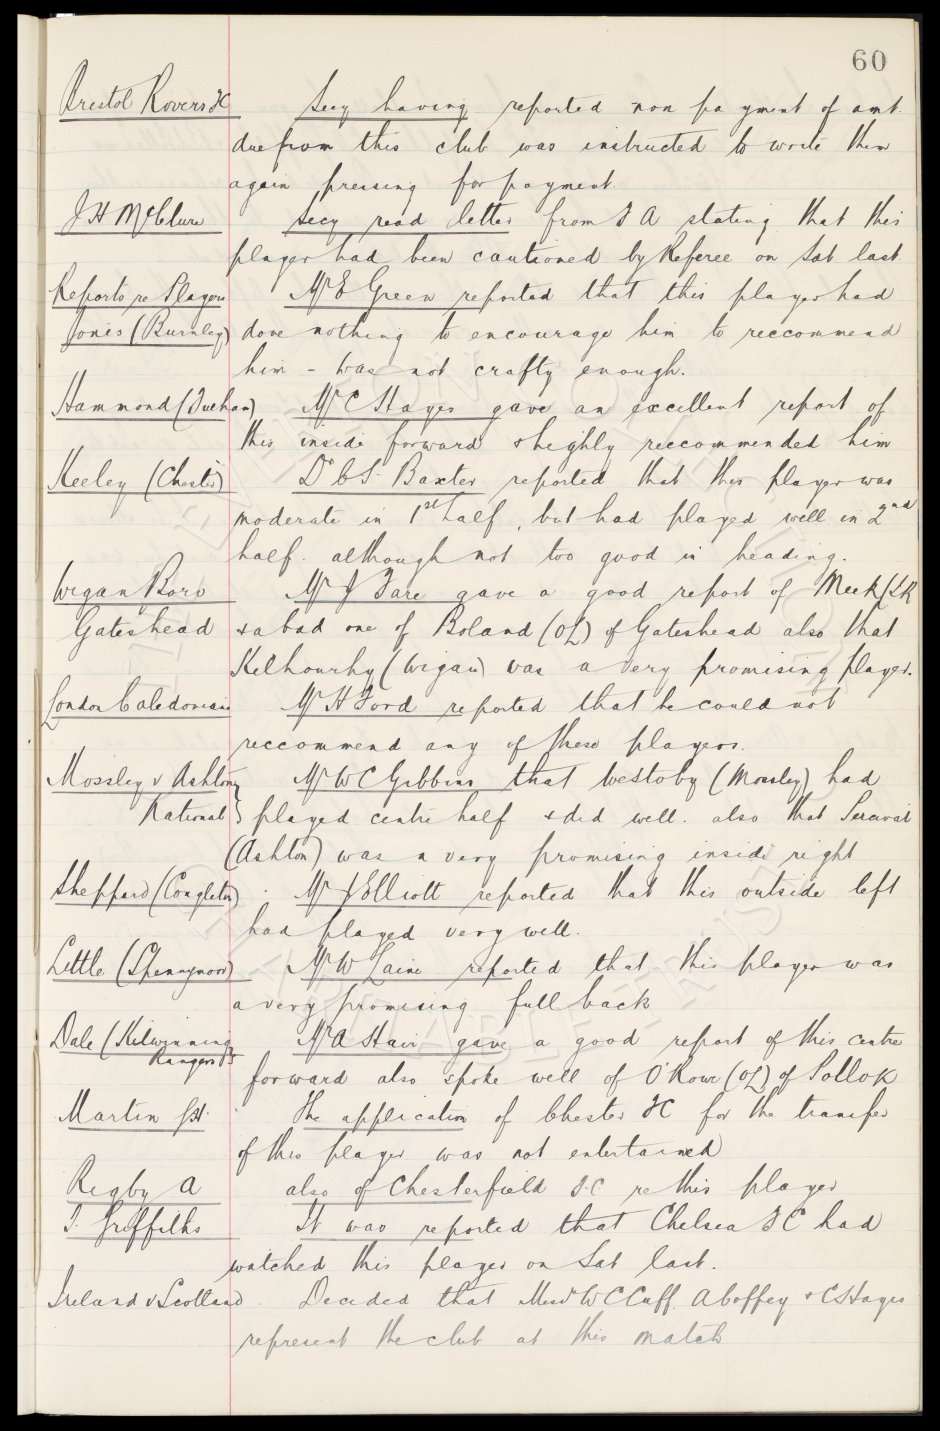 60
Bristol Rovers FC Secy having reported non payment of amt
due from this club was instructed to write them
again pressing for payment.
J H McClure Secy read letter from F A stating that this
player had been cautioned by Referee on Sat last.
Reports re Players Mr E Green reported that this player had
Jones (Burnley) done nothing to encourage him to reccommend
him - was not crafty enough.
Hammond (Fulham) Mr C Hayes gave an excellent report of
this inside forward & highly reccommended him
Keeley (Chester) Dr C S Baxter reported that this player was
moderate in 1st half, but had played well in 2nd
half. although not too good in heading.
Wigan Boro Mr J Fare gave a good report of Meek (IR
Gateshead & a bad one of Boland (OL) of Gateshead also that
Kilhourhy (Wigan) was a very promising player.
London Caledonians Mr H Ford reported that he could not
reccommend any of these players.
Mossley v Ashton Mr W C Gibbins that Westoby (Mossley) had
National } played centre half & did well. also that Percival
(Ashton) was a very promising inside right
Sheppard (Congleton) Mr J Elliott reported that this outside left
had played very well.
Little (Spennymoor) Mr W Laine reported that this player was
a very promising full back
Dale (Kilwinning Mr A Hair gave a good report of this centre
Rangers) forward also spoke well of O'Rour (OL) of Pollok
Martin J H. The application of Chester FC for the transfer
of this player was not entertained
Rigby A also of Chesterfield F.C re this player
T. Griffiths It was reported that Chelsea FC had
watched this player on Sat last.
Ireland v Scotland. Decided that Messrs W C Cuff. A Coffey & C Hayes
represent the club at this match